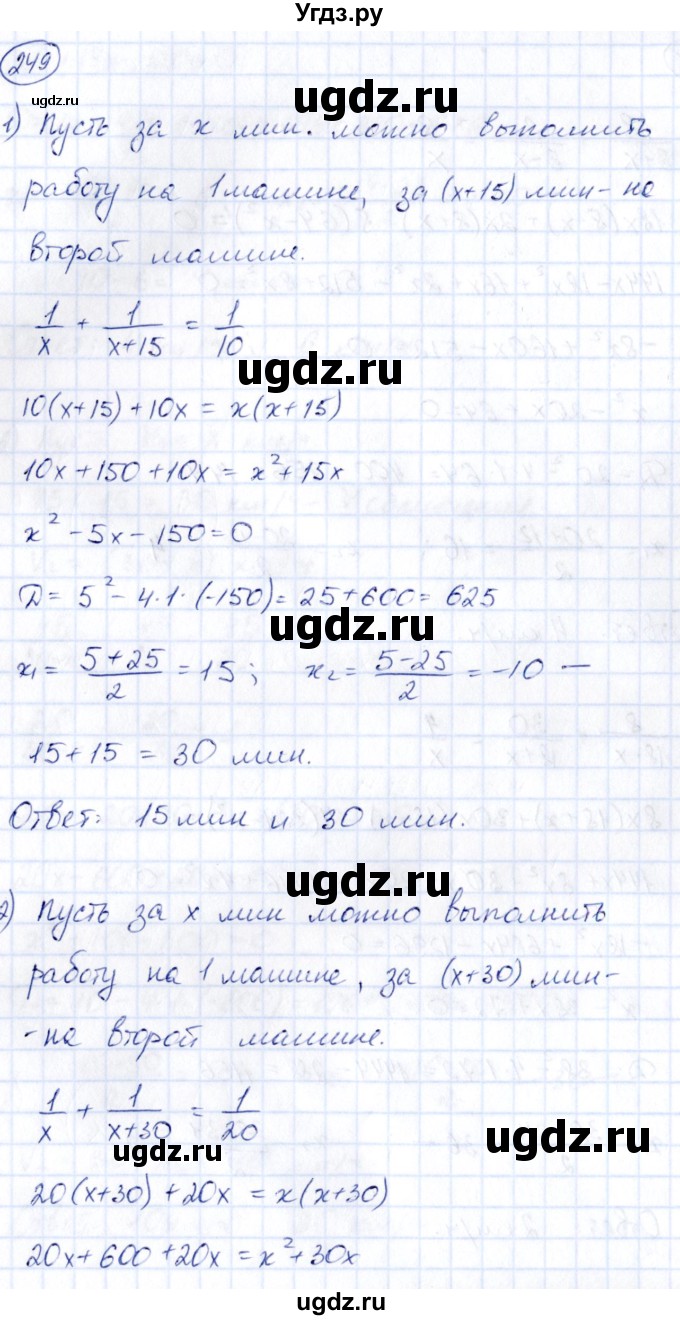 Угдз.ру
249
ugdz.ru
ugdz.ru
1) Пусть за x мин. можно выполнить
работу на 1 машине, за (x+15) мин - на
второй машине.
1/x + 1/(x+15) = 1/10
ugdz.ru
10(x+15)+10x = x(x+15)
10x+150+10x = x²+15x
x² - 5x - 150 = 0
Д = 5² - 4·1·(-150) = 25+600 = 625
ugdz.ru
x₁ = (5+25)/2 = 15; x₂ = (5-25)/2 = -10 —
15+15 = 30 мин.
Ответ: 15 мин и 30 мин.
ugdz.ru
2) Пусть за x мин можно выполнить
работу на 1 машине, за (x+30) мин-
-на второй машине.
1/x + 1/(x+30) = 1/20
ugdz.ru
ugdz.ru
20(x+30)+20x = x(x+30)
20x+600+20x = x²+30x
ugdz.ru